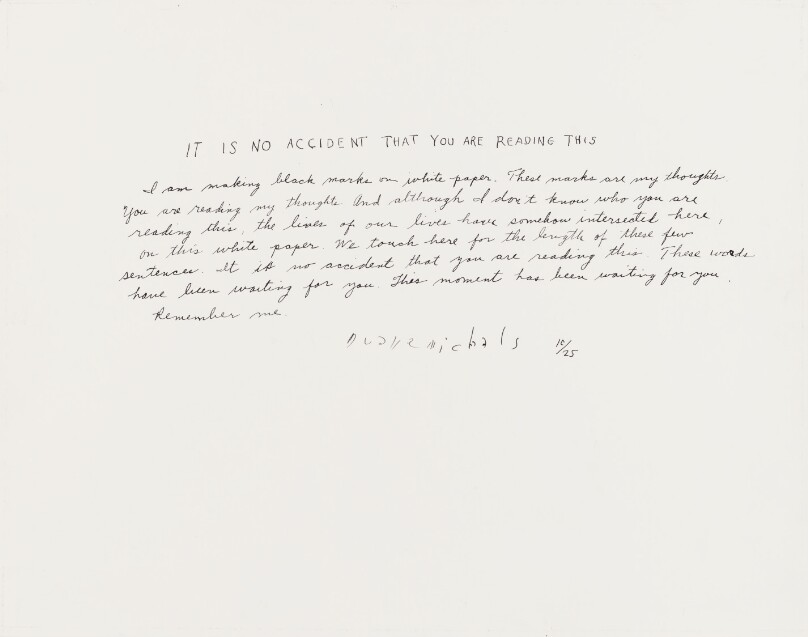 IT IS NO ACCIDENT THAT YOU ARE READING THIS
I am making black marks on white paper. These marks are my thoughts
You are reading my thoughts And although I don't know who you are
reading this, the lines of our lives have somehow intersected here,
on this white paper. We touch here for the length of these few
sentences. It is no accident that you are reading this. These words
have been waiting for you. This moment has been waiting for you.
Remember me.
Duane Michals 10/25